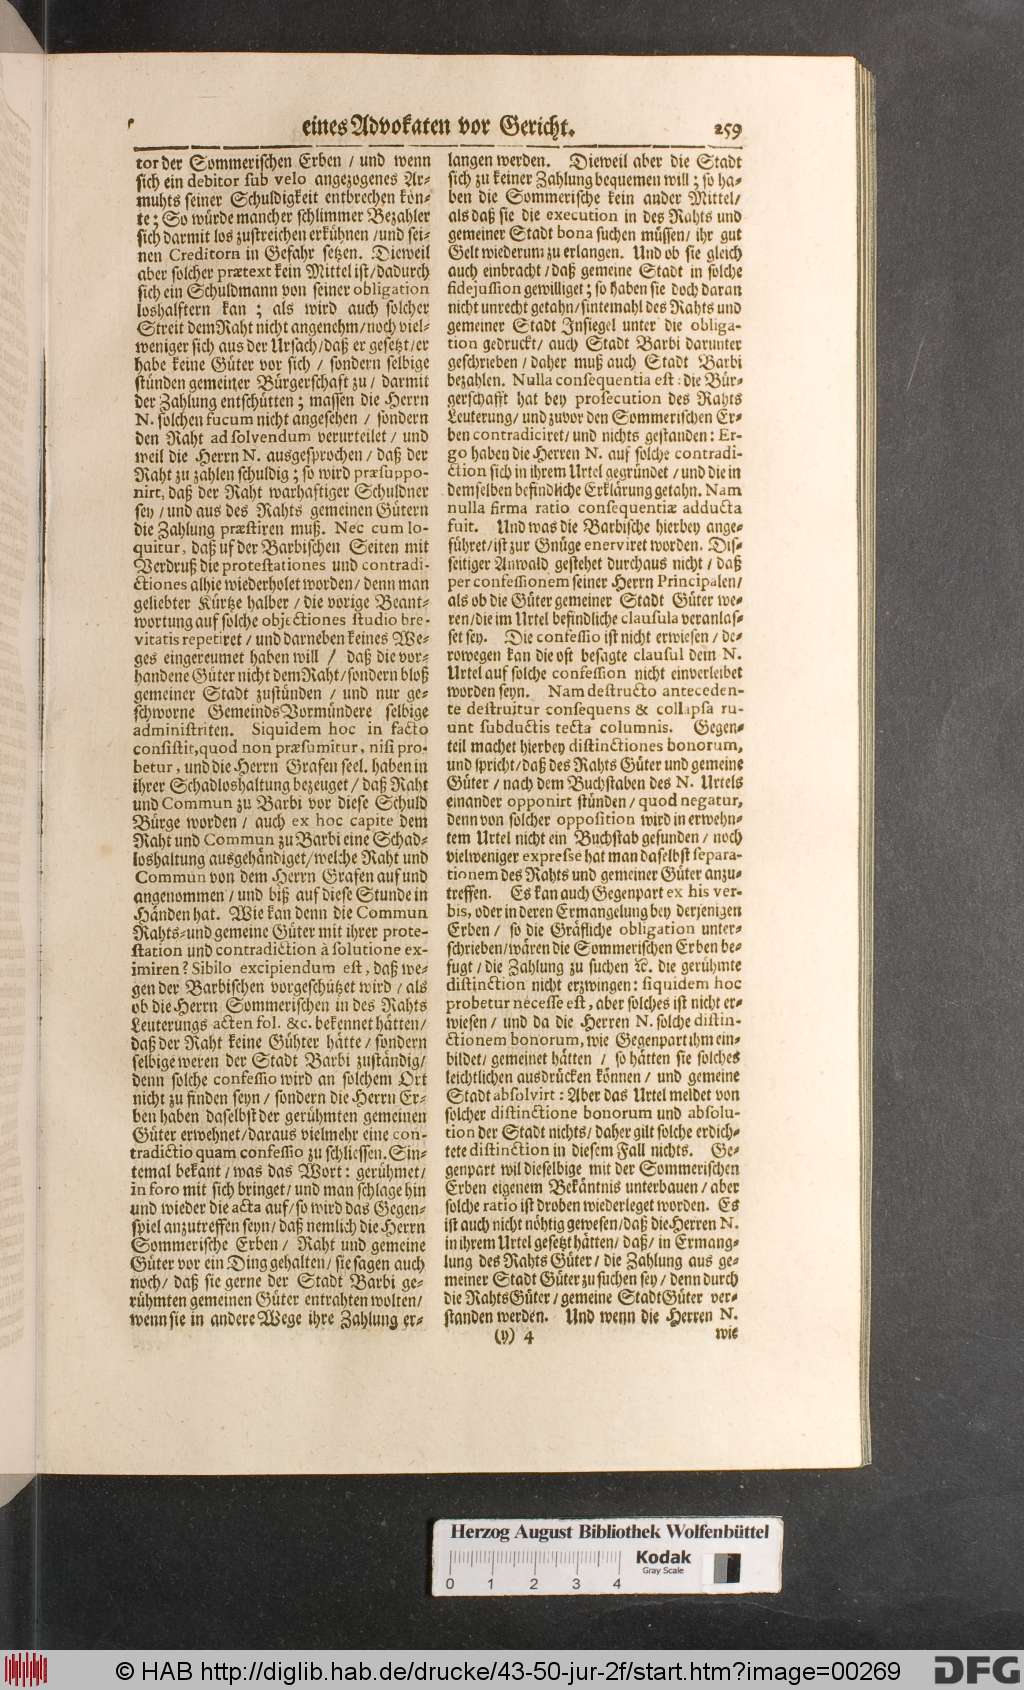 eines Advokaten vor Gericht.
259
tor der Sommerischen Erben / und wenn
sich ein debitor sub velo angezogenes Ar-
muhts seiner Schuldigkeit entbrechen kön-
te; So würde mancher schlimmer Bezahler
sich darmit los zustreichen erkühnen / und sei-
nen Creditorn in Gefahr setzen. Dieweil
aber solcher prætext kein Mittel ist / dadurch
sich ein Schuldmann von seiner obligation
loshalftern kan ; als wird auch solcher
Streit dem Raht nicht angenehm / noch viel-
weniger sich aus der Ursach / daß er gesetzt / er
habe keine Güter vor sich / sondern selbige
stünden gemeiner Bürgerschaft zu / darmit
der Zahlung entschütten ; massen die Herrn
N. solchen fucum nicht angesehen / sondern
den Raht ad solvendum verurteilet / und
weil die Herrn N. ausgesprochen / daß der
Raht zu zahlen schuldig ; so wird præsuppo-
nirt, daß der Raht warhaftiger Schuldner
sey / und aus des Rahts gemeinen Gütern
die Zahlung præstiren muß. Nec cum lo-
quitur, daß uf der Barbischen Seiten mit
Verdruß die protestationes und contradi-
ctiones alhie wiederholet worden / denn man
geliebter Kürtze halber / die vorige Beant-
wortung auf solche objectiones studio bre-
vitatis repetiret / und darneben keines We-
ges eingereumet haben will / daß die vor-
handene Güter nicht dem Raht / sondern bloß
gemeiner Stadt zustünden / und nur ge-
schworne Gemeinds Vormündere selbige
administriten. Siquidem hoc in facto
consistit, quod non præsumitur, nisi pro-
betur, und die Herrn Grafen seel. haben in
ihrer Schadloshaltung bezeuget / daß Raht
und Commun zu Barbi vor diese Schuld
Bürge worden / auch ex hoc capite dem
Raht und Commun zu Barbi eine Schad-
loshaltung ausgehändiget / welche Raht und
Commun von dem Herrn Grafen auf und
angenommen / und biß auf diese Stunde in
Händen hat. Wie kan denn die Commun
Rahts- und gemeine Güter mit ihrer prote-
station und contradiction à solutione ex-
imiren? Sibilo excipiendum est, daß we-
gen der Barbischen vorgeschützet wird / als
ob die Herrn Sommerischen in des Rahts
Leuterungs acten fol. &c. bekennet hätten /
daß der Raht keine Gühter hätte / sondern
selbige weren der Stadt Barbi zuständig /
denn solche confessio wird an solchem Ort
nicht zu finden seyn / sondern die Herrn Er-
ben haben daselbst der gerühmten gemeinen
Güter erwehnet / daraus vielmehr eine con-
tradictio quam confessio zu schliessen. Sin-
temal bekant / was das Wort: gerühmet /
in foro mit sich bringet / und man schlage hin
und wieder die acta auf / so wird das Gegen-
spiel anzutreffen seyn / daß nemlich die Herrn
Sommerische Erben / Raht und gemeine
Güter vor ein Ding gehalten / sie sagen auch
noch / daß sie gerne der Stadt Barbi ge-
rühmten gemeinen Güter entrahten wolten /
wenn sie in andere Wege ihre Zahlung er-
langen werden. Dieweil aber die Stadt
sich zu keiner Zahlung bequemen will ; so ha-
ben die Sommerische kein ander Mittel /
als daß sie die execution in des Rahts und
gemeiner Stadt bona suchen müssen / ihr gut
Gelt wiederum zu erlangen. Und ob sie gleich
auch einbracht / daß gemeine Stadt in solche
fidejussion gewilliget ; so haben sie doch daran
nicht unrecht getahn / sintemahl des Rahts und
gemeiner Stadt Insiegel unter die obliga-
tion gedruckt / auch Stadt Barbi darunter
geschrieben / daher muß auch Stadt Barbi
bezahlen. Nulla consequentia est : die Bür-
gerschafft hat bey prosecution des Rahts
Leuterung / und zuvor den Sommerischen Er-
ben contradiciret / und nichts gestanden : Er-
go haben die Herren N. auf solche contradi-
ction sich in ihrem Urtel gegründet / und die in
demselben befindliche Erklärung getahn. Nam
nulla firma ratio consequentiæ adducta
fuit. Und was die Barbische hierbey ange-
führet / ist zur Gnüge enerviret worden. Dis-
seitiger Anwald gestehet durchaus nicht / daß
per confessionem seiner Herrn Principalen /
als ob die Güter gemeiner Stadt Güter we-
ren / die im Urtel befindliche clausula veranlas-
set sey. Die confessio ist nicht erwiesen / de-
rowegen kan die oft besagte clausul dem N.
Urtel auf solche confession nicht einverleibet
worden seyn. Nam destructo anteceden-
te destruitur consequens & collapsa ru-
unt subductis tecta columnis. Gegen-
teil machet hierbey distinctiones bonorum,
und spricht / daß des Rahts Güter und gemeine
Güter / nach dem Buchstaben des N. Urtels
einander opponirt stünden / quod negatur,
denn von solcher opposition wird in erwehn-
tem Urtel nicht ein Buchstab gefunden / noch
vielweniger expresse hat man daselbst separa-
tionem des Rahts und gemeiner Güter anzu-
treffen. Es kan auch Gegenpart ex his ver-
bis, oder in deren Ermangelung bey derjenigen
Erben / so die Gräfliche obligation unter-
schrieben / wären die Sommerischen Erben be-
fugt / die Zahlung zu suchen &c. die gerühmte
distinction nicht erzwingen : siquidem hoc
probetur necesse est, aber solches ist nicht er-
wiesen / und da die Herren N. solche distin-
ctionem bonorum, wie Gegenpart ihm ein-
bildet / gemeinet hätten / so hätten sie solches
leichtlichen ausdrücken können / und gemeine
Stadt absolvirt : Aber das Urtel meldet von
solcher distinctione bonorum und absolu-
tion der Stadt nichts / daher gilt solche erdich-
tete distinction in diesem Fall nichts. Ge-
genpart wil dieselbige mit der Sommerischen
Erben eigenem Bekäntnis unterbauen / aber
solche ratio ist droben wiederleget worden. Es
ist auch nicht nöhtig gewesen / daß die Herren N.
in ihrem Urtel gesetzt hätten / daß / in Ermang-
lung des Rahts Güter / die Zahlung aus ge-
meiner Stadt Güter zu suchen sey / denn durch
die Rahts Güter / gemeine Stadt Güter ver-
standen werden. Und wenn die Herren N.
(y) 4
wie
Herzog August Bibliothek Wolfenbüttel
Kodak
Gray Scale
0 1 2 3 4
© HAB http://diglib.hab.de/drucke/43-50-jur-2f/start.htm?image=00269
DFG